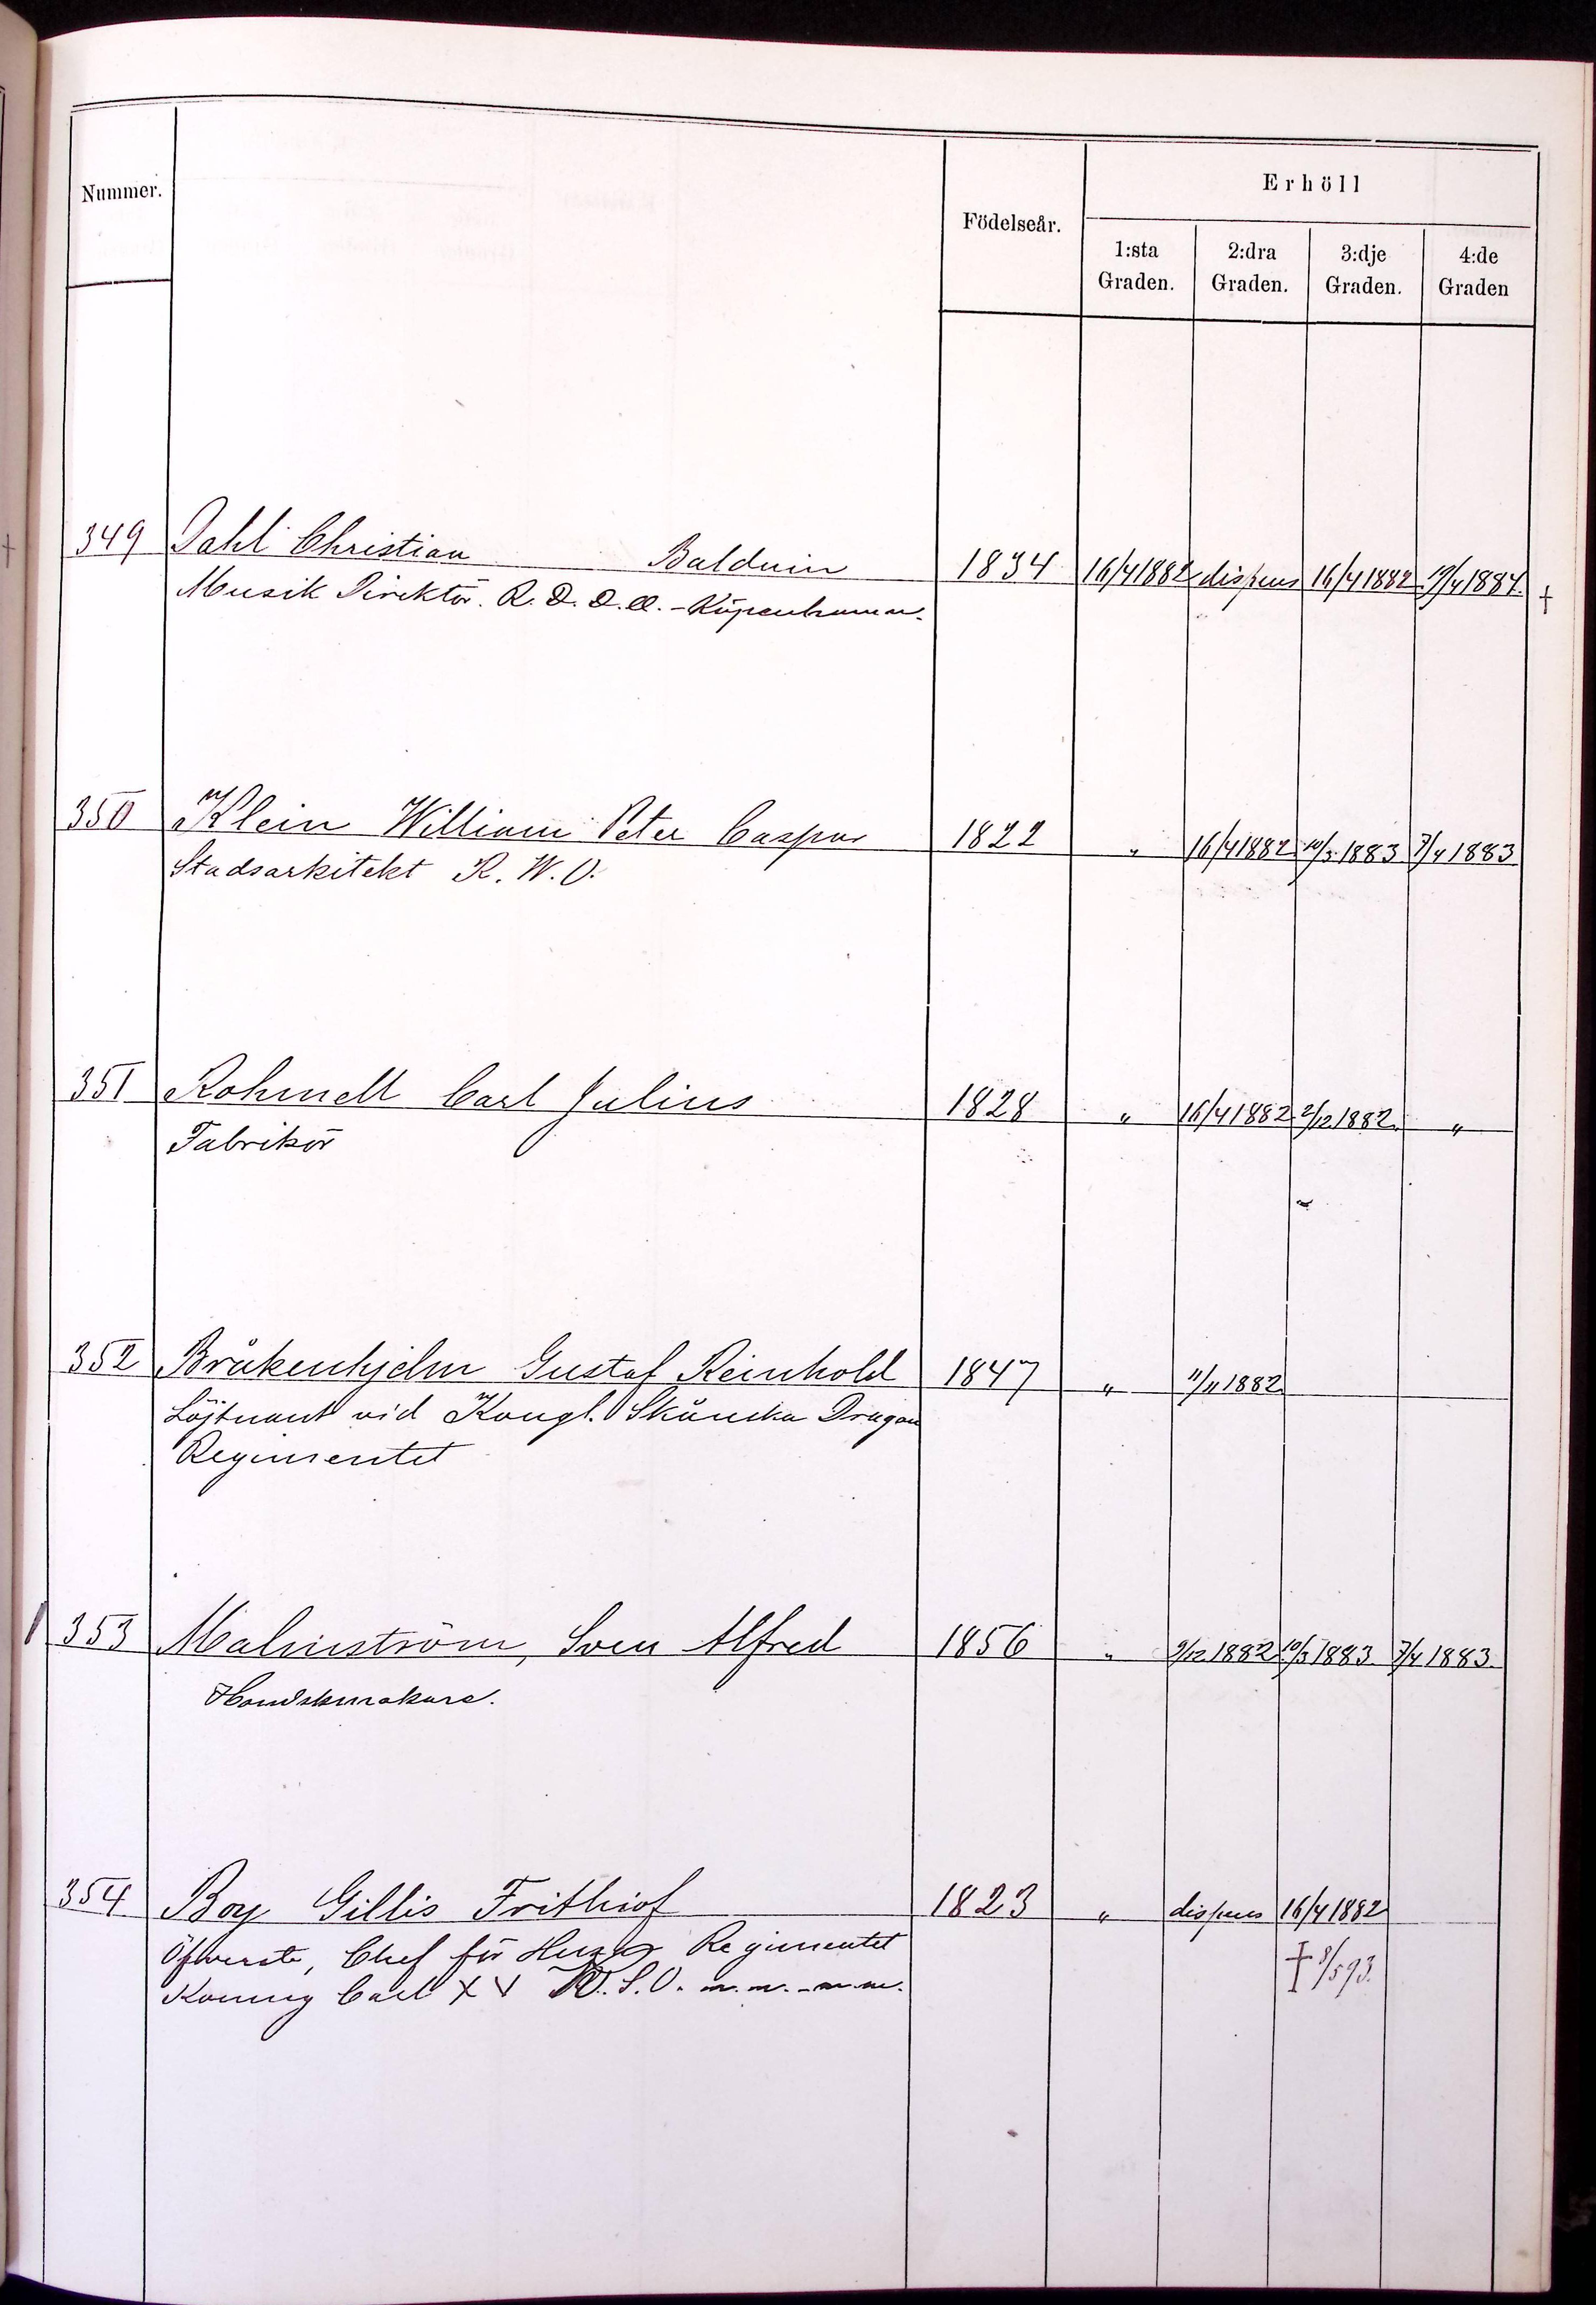 Nummer.
Födelseår.
Erhöll
1:sta Graden.
2:dra Graden.
3:dje Graden.
4:de Graden
349 Dahl Christian Balduin 1834 16/4 1882 dispens 16/4 1882 19/4 1884. †
Musik Direktör. R. D. D. O. - Köpenhamn.
350 Klein William Peter Caspar 1822 " 16/4 1882 10/3 1883 7/4 1883
Stadsarkitekt R. W. O.
351 Rohmell Carl Julius 1828 " 16/4 1882 2/12 1882 "
Fabrikör
352 Bråkenhjelm Gustaf Reinhold 1847 " 11/11 1882
Löjtnant vid Kongl. Skånska Dragon
Regimentet
353 Malmström, Sven Alfred 1856 " 9/12 1882 10/3 1883 7/4 1883.
Handskmakare.
354 Boy Gillis Frithiof 1823 " dispens 16/4 1882
Öfverste, Chef för Husar Regimentet
Konung Carl XV R. S. O. m.m. - m.m.
† 8/5 93.